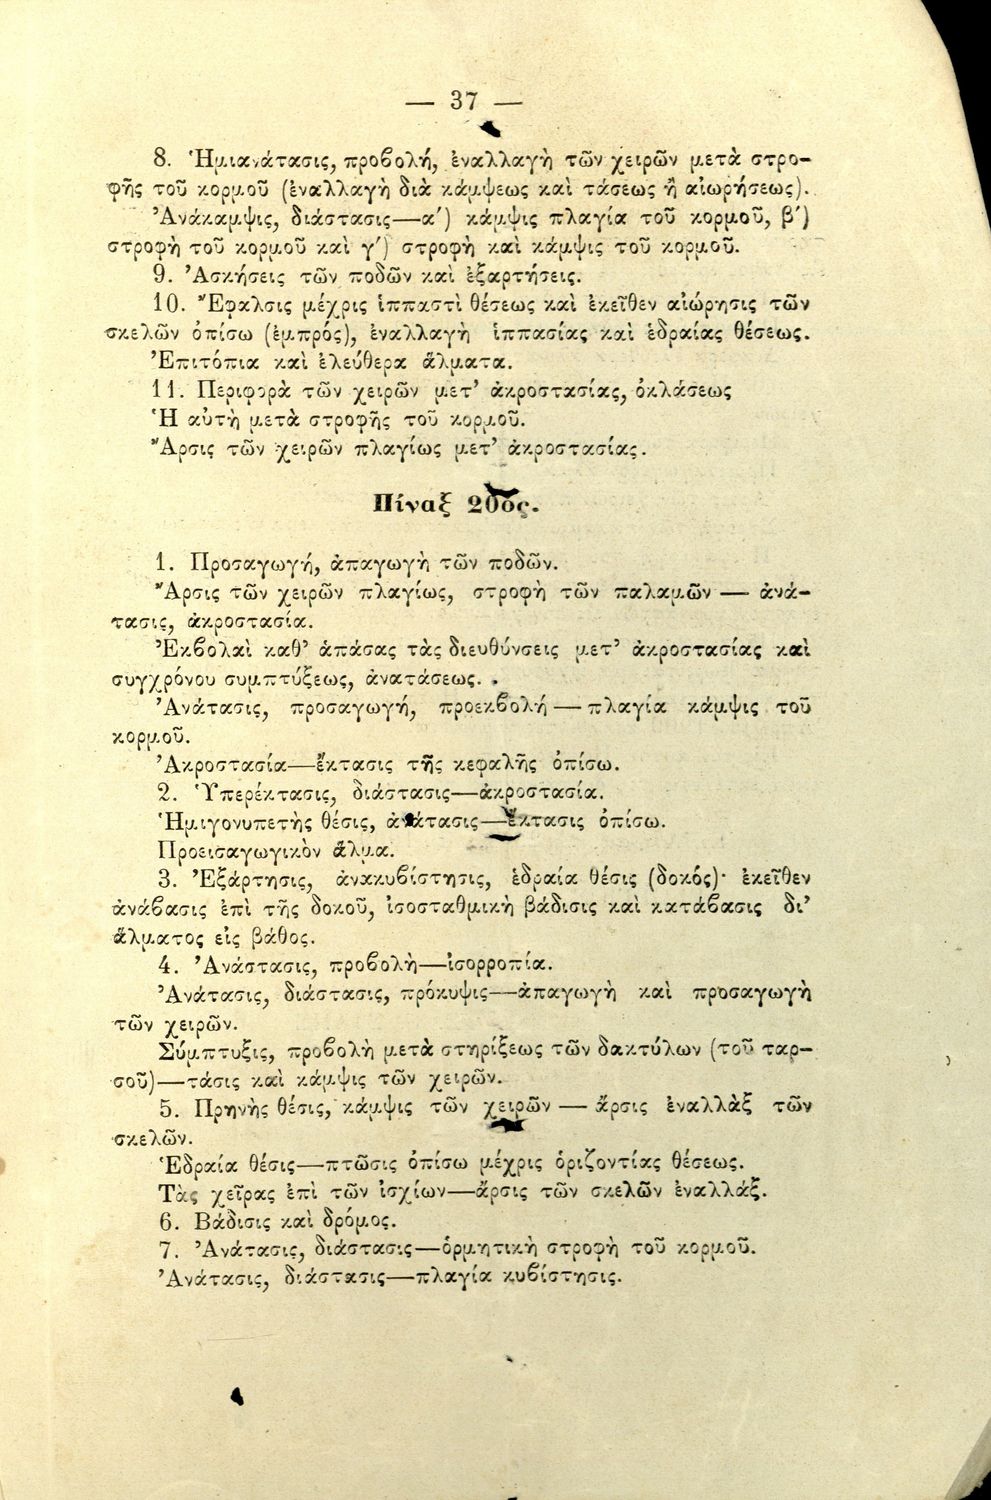 — 37 —
8. Ἡμιανάτασις, προβολή, ἐναλλαγὴ τῶν χειρῶν μετὰ στρο-
φῆς τοῦ κορμοῦ (ἐναλλαγὴ διὰ κάμψεως καὶ τάσεως ἢ αἰωρήσεως).
Ἀνάκαμψις, διάστασις—α′) κάμψις πλαγία τοῦ κορμοῦ, β′)
στροφὴ τοῦ κορμοῦ καὶ γ′) στροφὴ καὶ κάμψις τοῦ κορμοῦ.
9. Ἀσκήσεις τῶν ποδῶν καὶ ἐξαρτήσεις.
10. Ἔφαλσις μέχρις ἱππαστὶ θέσεως καὶ ἐκεῖθεν αἰώρησις τῶν
σκελῶν ὀπίσω (ἐμπρός), ἐναλλαγὴ ἱππασίας καὶ ἑδραίας θέσεως.
Ἐπιτόπια καὶ ἐλεύθερα ἅλματα.
11. Περιφορὰ τῶν χειρῶν μετ' ἀκροστασίας, ὀκλάσεως
Ἡ αὐτὴ μετὰ στροφῆς τοῦ κορμοῦ.
Ἄρσις τῶν χειρῶν πλαγίως μετ' ἀκροστασίας.
Πίναξ 20ός.
1. Προσαγωγή, ἀπαγωγὴ τῶν ποδῶν.
Ἄρσις τῶν χειρῶν πλαγίως, στροφὴ τῶν παλαμῶν — ἀνά-
τασις, ἀκροστασία.
Ἐκβολαὶ καθ' ἁπάσας τὰς διευθύνσεις μετ' ἀκροστασίας καὶ
συγχρόνου συμπτύξεως, ἀνατάσεως.
Ἀνάτασις, προσαγωγή, προεκβολή — πλαγία κάμψις τοῦ
κορμοῦ.
Ἀκροστασία—ἔκτασις τῆς κεφαλῆς ὀπίσω.
2. Ὑπερέκτασις, διάστασις—ἀκροστασία.
Ἡμιγονυπετὴς θέσις, ἀνάτασις—ἔκτασις ὀπίσω.
Προεισαγωγικὸν ἅλμα.
3. Ἐξάρτησις, ἀνακυβίστησις, ἑδραία θέσις (δοκός)· ἐκεῖθεν
ἀνάβασις ἐπὶ τῆς δοκοῦ, ἰσοσταθμικὴ βάδισις καὶ κατάβασις δι'
ἅλματος εἰς βάθος.
4. Ἀνάστασις, προβολὴ—ἰσορροπία.
Ἀνάτασις, διάστασις, πρόκυψις—ἀπαγωγὴ καὶ προσαγωγὴ
τῶν χειρῶν.
Σύμπτυξις, προβολὴ μετὰ στηρίξεως τῶν δακτύλων (τοῦ ταρ-
σοῦ)—τάσις καὶ κάμψις τῶν χειρῶν.
5. Πρηνὴς θέσις, κάμψις τῶν χειρῶν — ἄρσις ἐναλλὰξ τῶν
σκελῶν.
Ἑδραία θέσις—πτῶσις ὀπίσω μέχρις ὁριζοντίας θέσεως.
Τὰς χεῖρας ἐπὶ τῶν ἰσχίων—ἄρσις τῶν σκελῶν ἐναλλάξ.
6. Βάδισις καὶ δρόμος.
7. Ἀνάτασις, διάστασις—ὁρμητικὴ στροφὴ τοῦ κορμοῦ.
Ἀνάτασις, διάστασις—πλαγία κυβίστησις.